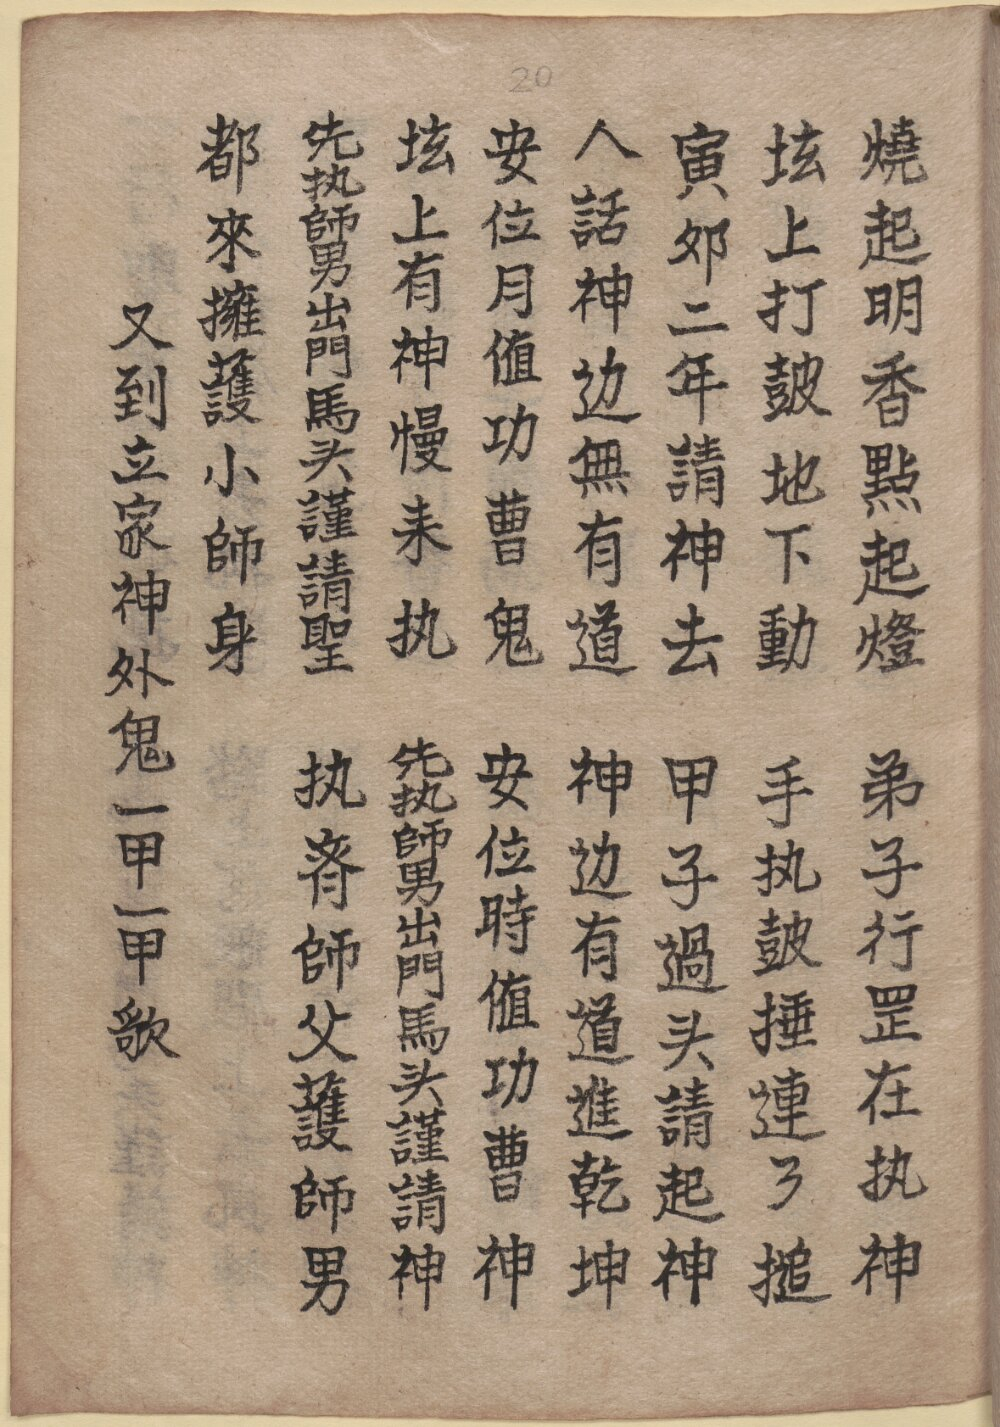 20
燒起明香點起燈 弟子行罡在执神
坛上打皷地下動 手执皷捶連了搥
寅卯二年請神去 甲子過头請起神
人話神边無有道 神边有道進乾坤
安位月值功曹鬼 安位時值功曹神
坛上有神慢来执 先执師男出門馬头謹請神
先执師男出門馬头謹請聖 执斉師父護師男
都來擁護小師身
又到立家神外鬼一甲一甲歌